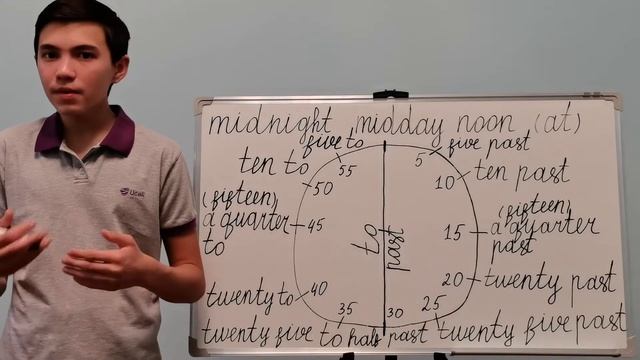 midnight midday noon (at)
five to 5 five past
ten to 55 10 ten past
50
(fifteen) (fifteen)
a quarter 45 15 a quarter
to to past past
20 twenty past
twenty to 40
35 30 25
twenty five to half past twenty five past
Ucell